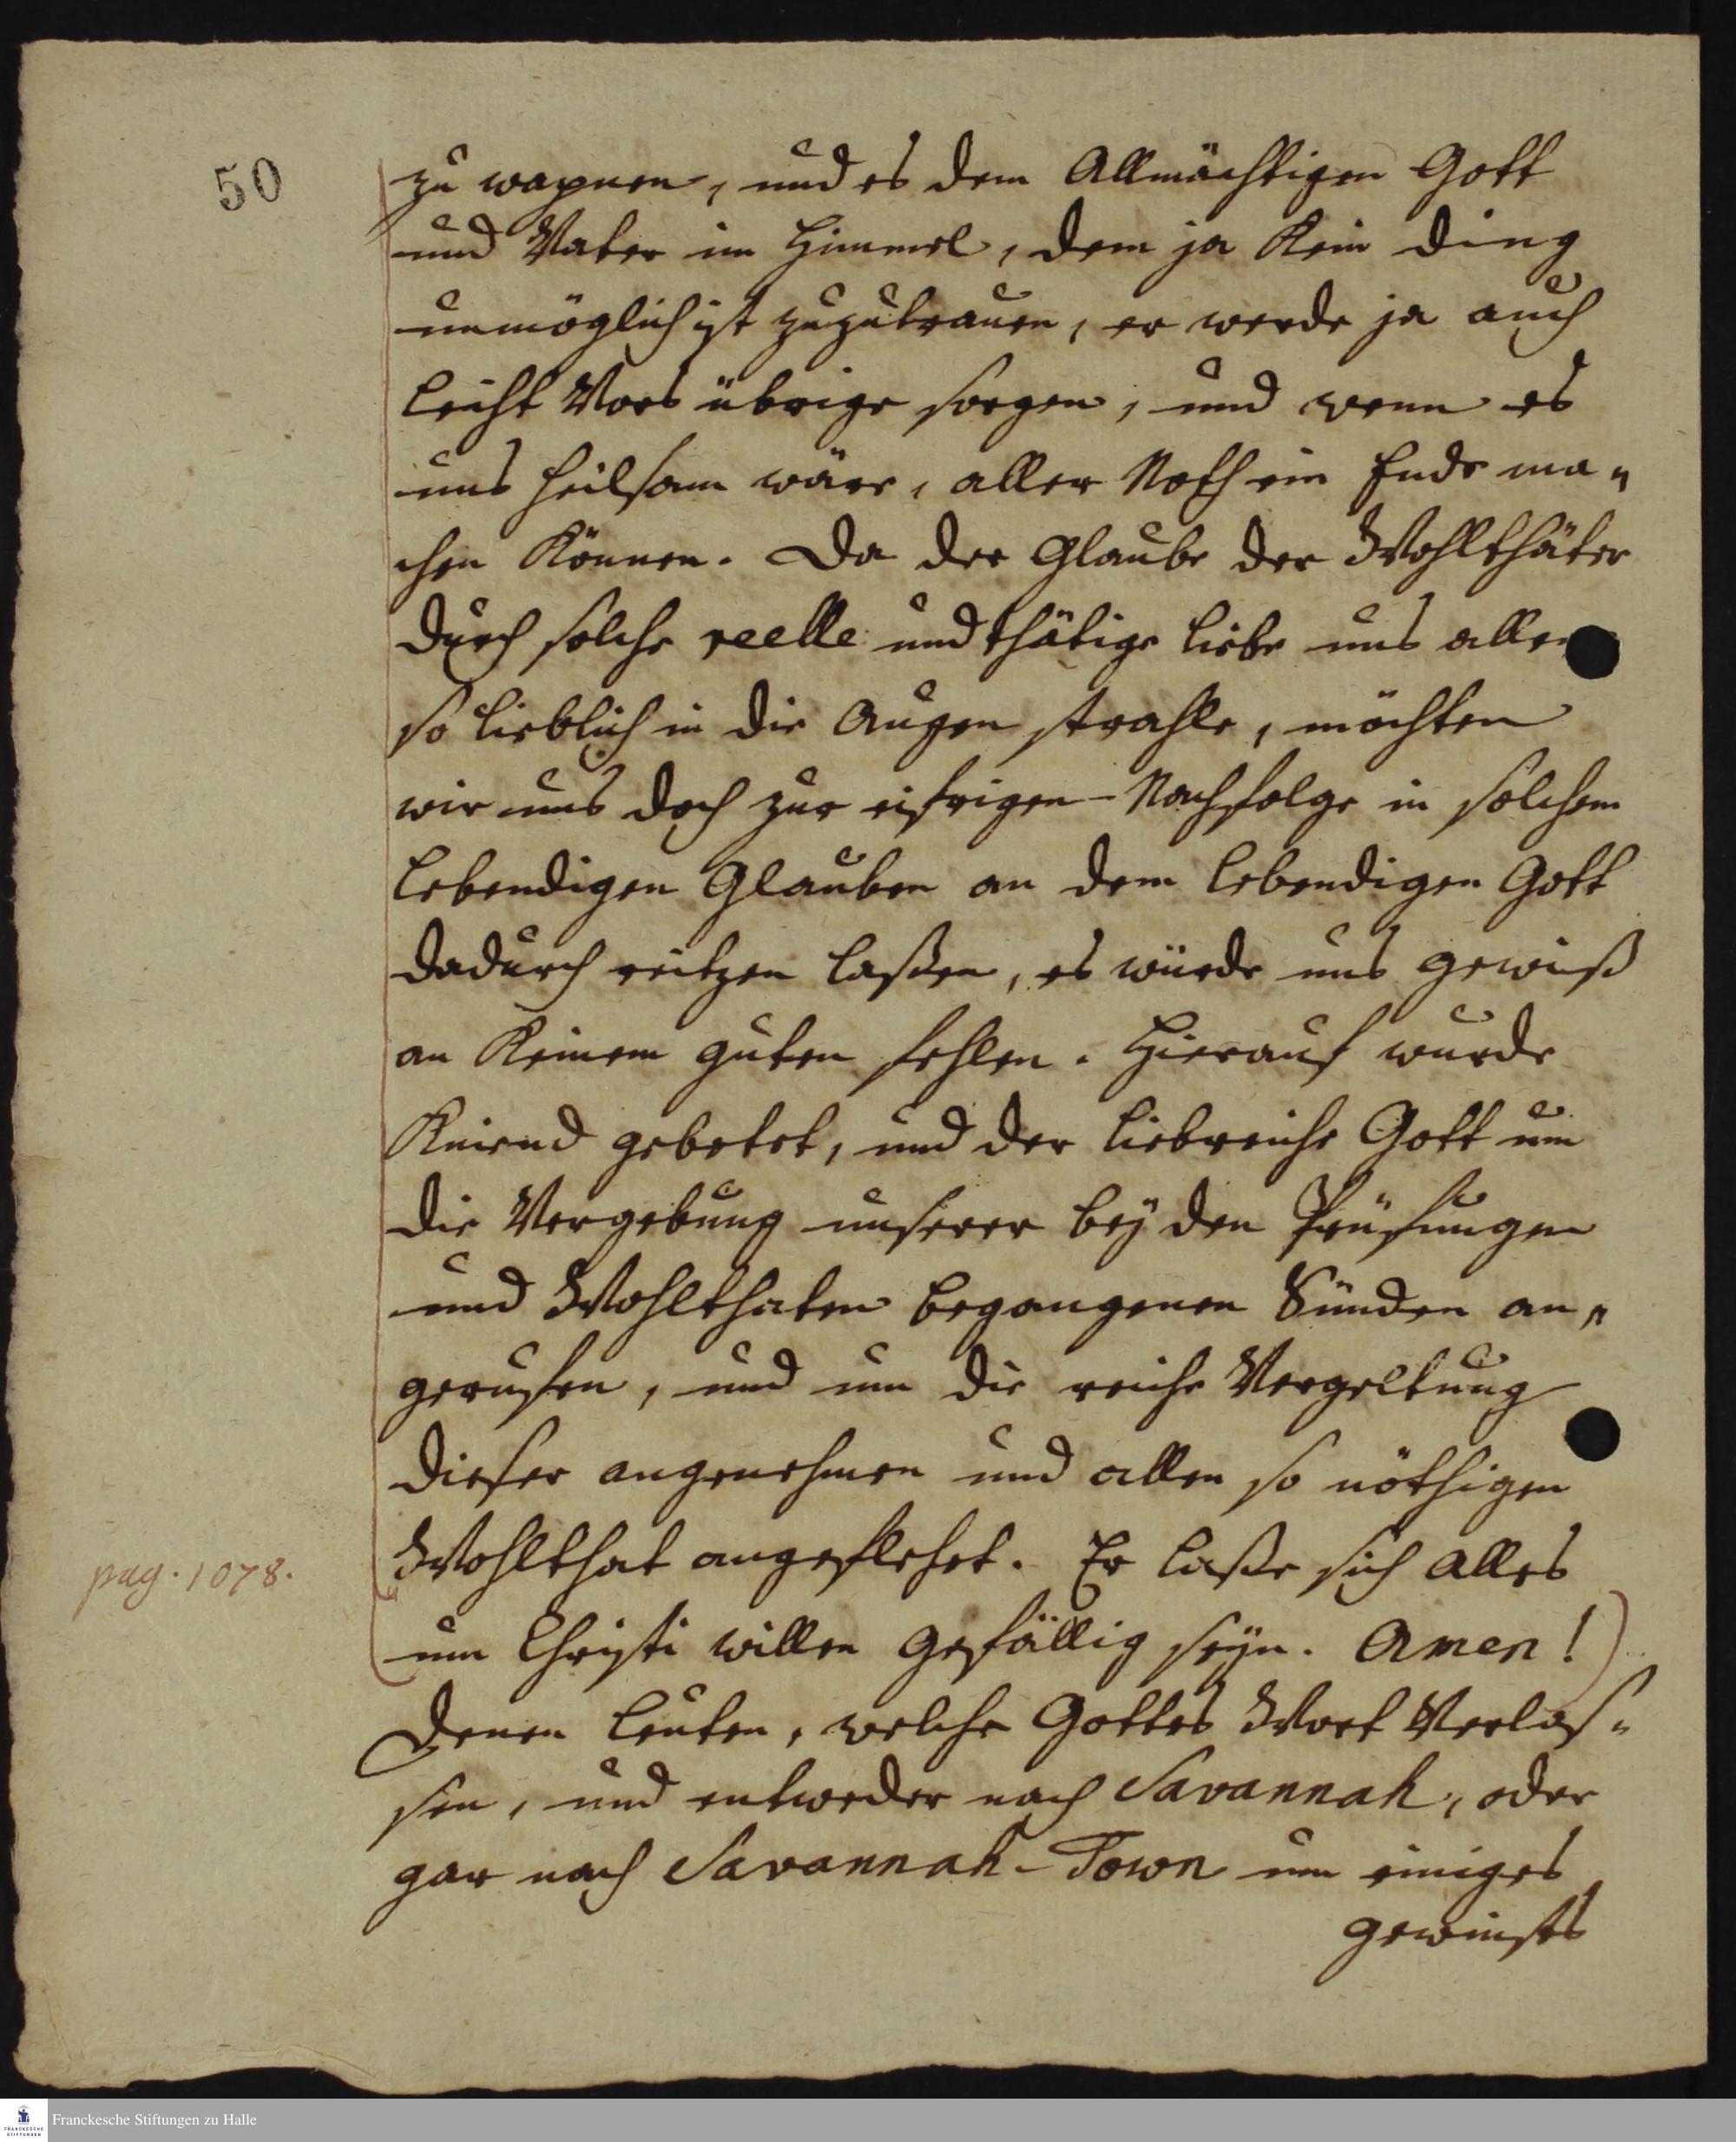 50
zu wapnen, und es dem Allmächtigen Gott
und Vater im Himmel, dem ja kein ding
unmöglich ist zuzutrauen, er werde ja auch
leicht Vors übrige sorgen, und wenn es
uns heilsam wäre, aller Noth ein Ende ma„
chen können. Da der Glaube der Wohlthäter
durch solche reelle und thätige liebe uns allen
so lieblich in die Augen strahle, möchten
wir uns doch zur eifrigen Nachfolge in solchem
lebendigen Glauben an dem lebendigen Gott
dadurch reitzen laßen, es würde uns gewiß
an keinem guten fehlen. Hierauf wurde
kniend gebetet, und der liebreiche Gott um
die Vergebung unserer bey den Prüfungen
und Wohlthaten begangenen Sünden an„
gerufen, und um die reiche Vergeltung
dieser angenehmen und allen so nöthigen
Wohlthat angeflehet. Er laße sich alles
pag. 1078.
um Christi willen gefällig seyn. Amen!)
Denen leuten, welche Gottes Wort Verlas„
sen, und entweder nach Savannah, oder
gar nach Savannah-Town um einiges
gewinstes
Franckesche Stiftungen zu Halle